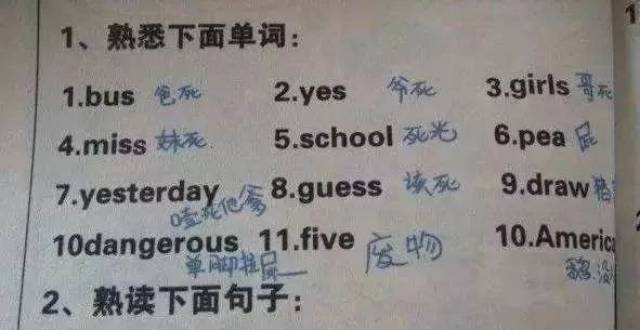 1、熟悉下面单词：
1.bus 爸死 2.yes 爷死 3.girls 哥死
4.miss 妹死 5.school 死光 6.pea 屁
7.yesterday 噎死他爹 8.guess 该死 9.draw
10dangerous 单脚拉屎 11.five 废物 10.Americ
2、熟读下面句子：